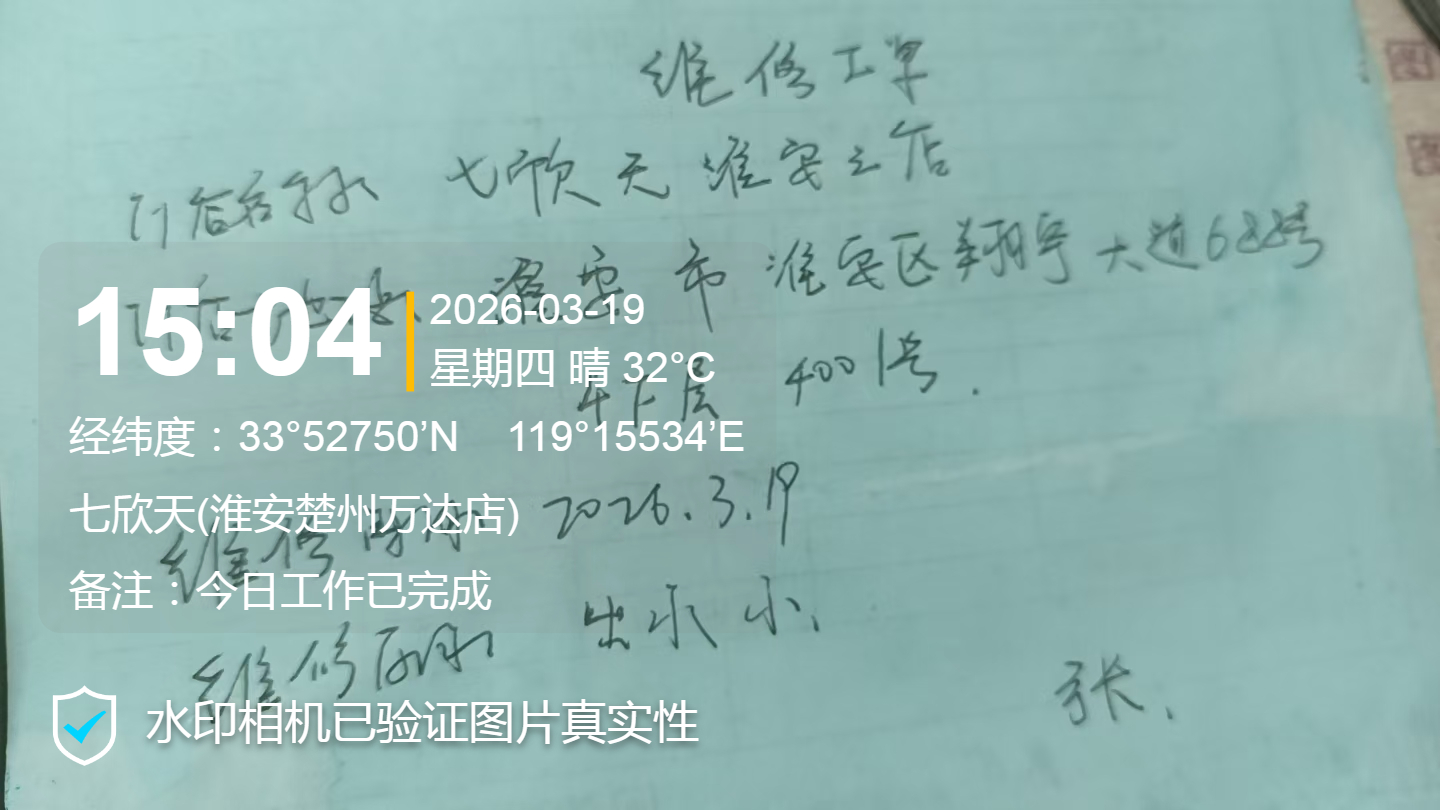 维修工单
门店名称 七欣天淮安三店
门店地址 淮安市淮安区翔宇大道688号
4001号.
维修时间 2026.3.19
维修原因 出水小.
张.
15:04
2026-03-19
星期四 晴 32°C
经纬度：33°52750’N 119°15534’E
七欣天(淮安楚州万达店)
备注：今日工作已完成
水印相机已验证图片真实性